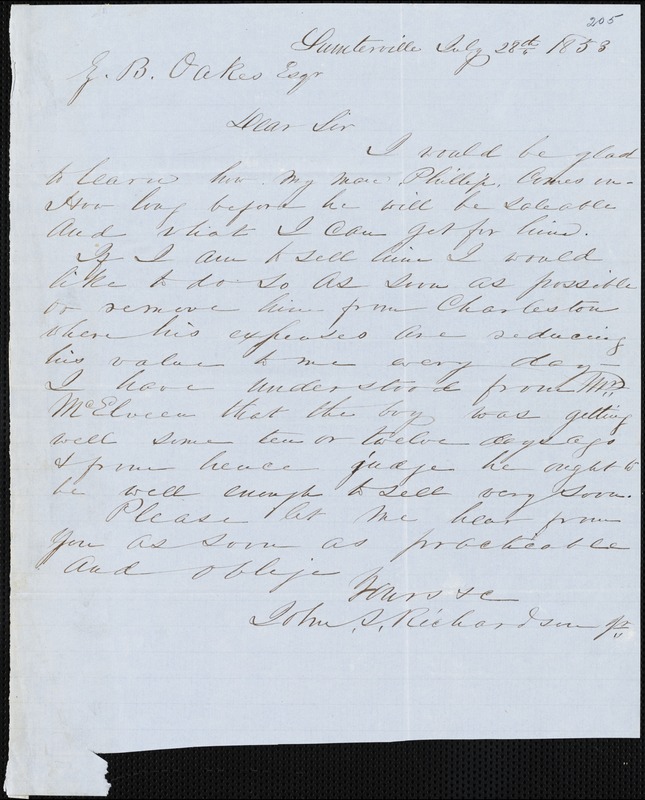 205
Sumterville July 28th 1853
Z. B. Oakes Esqr
Dear Sir
I would be glad
to learn how my man Phillip comes on -
How long before he will be saleable
and what I can get for him.
If I am to sell him I would
like to do so as soon as possible
or remove him from Charleston
where his expenses are reducing
his value to me every day
I have understood from Mr.
McElveen that the boy was getting
well some ten or twelve days ago
& from hence judge he ought to
be well enough to sell very soon.
Please let me hear from
you as soon as practicable
and oblige
Yours &c
John S. Richardson Jr.